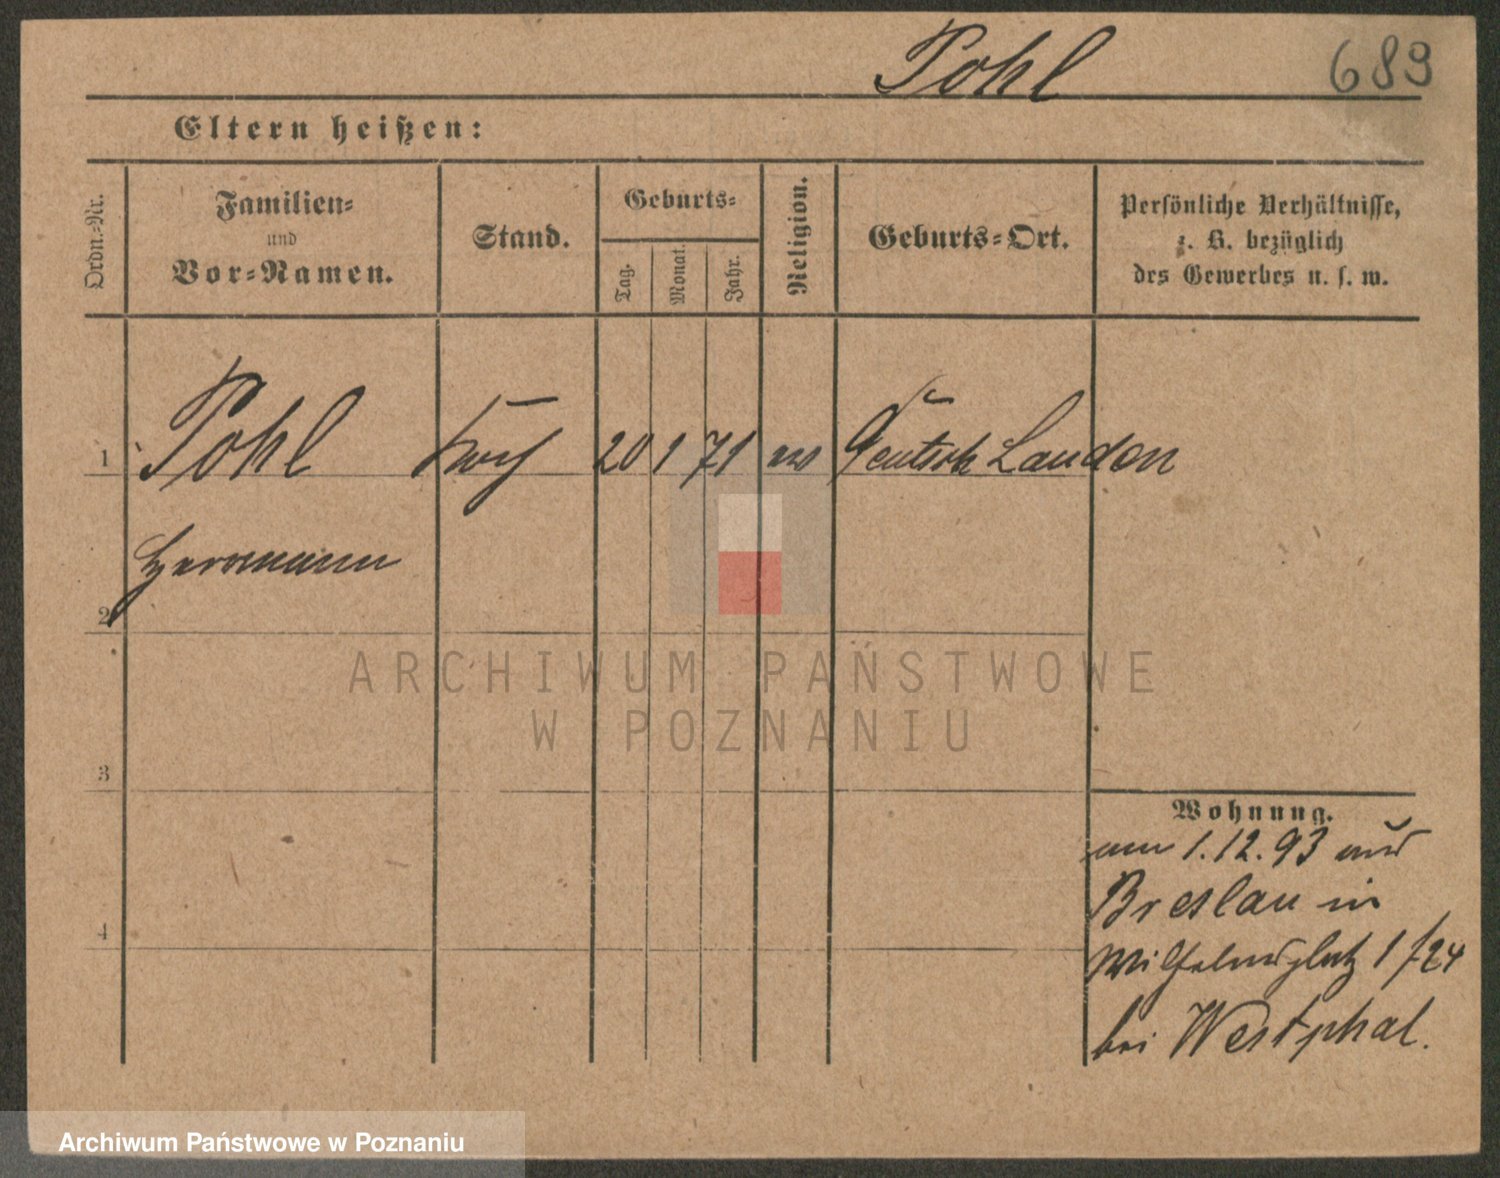 Pohl 689
Eltern heißen:
Ordn.-Nr.
Familien-
und
Vor-Namen.
Stand.
Geburts-
Tag.
Monat.
Jahr.
Religion.
Geburts-Ort.
Persönliche Verhältnisse,
z. B. bezüglich
des Gewerbes u. s. w.
1 Pohl 20 1 71 Deutsch Landon
Herrmann
2
3
Wohnung.
1.12.93 aus
Breslau in
4
Wilhelmsplatz 1 /24
bei Westphal.
ARCHIWUM PAŃSTWOWE
W POZNANIU
Archiwum Państwowe w Poznaniu